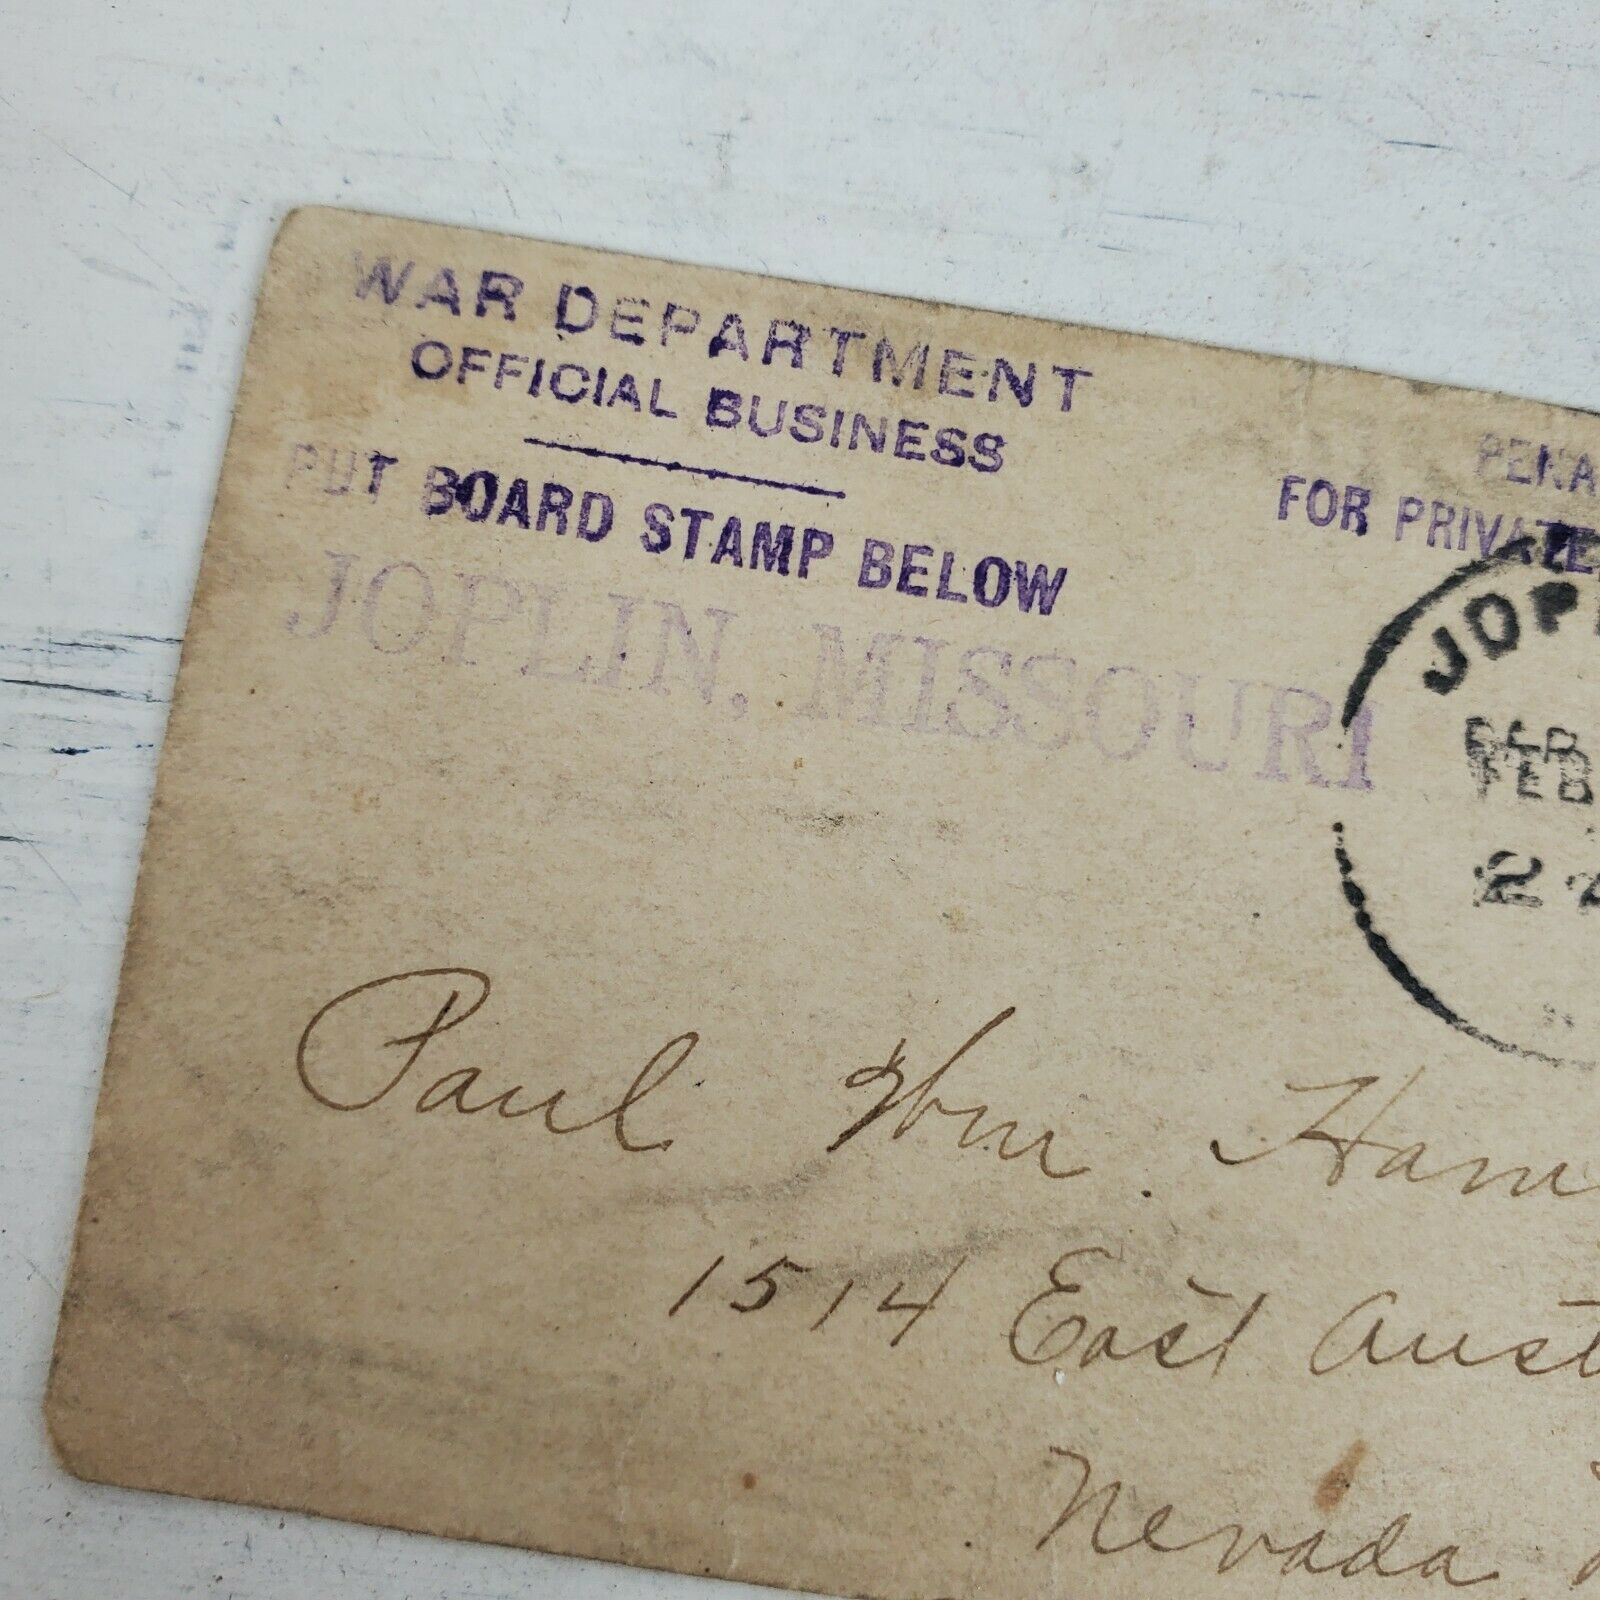 WAR DEPARTMENT
OFFICIAL BUSINESS
PUT BOARD STAMP BELOW
JOPLIN, MISSOURI
PENA
FOR PRIVATE
JOP
FEB
2
Paul Wm. Ham
1514 East Aust
Nevada